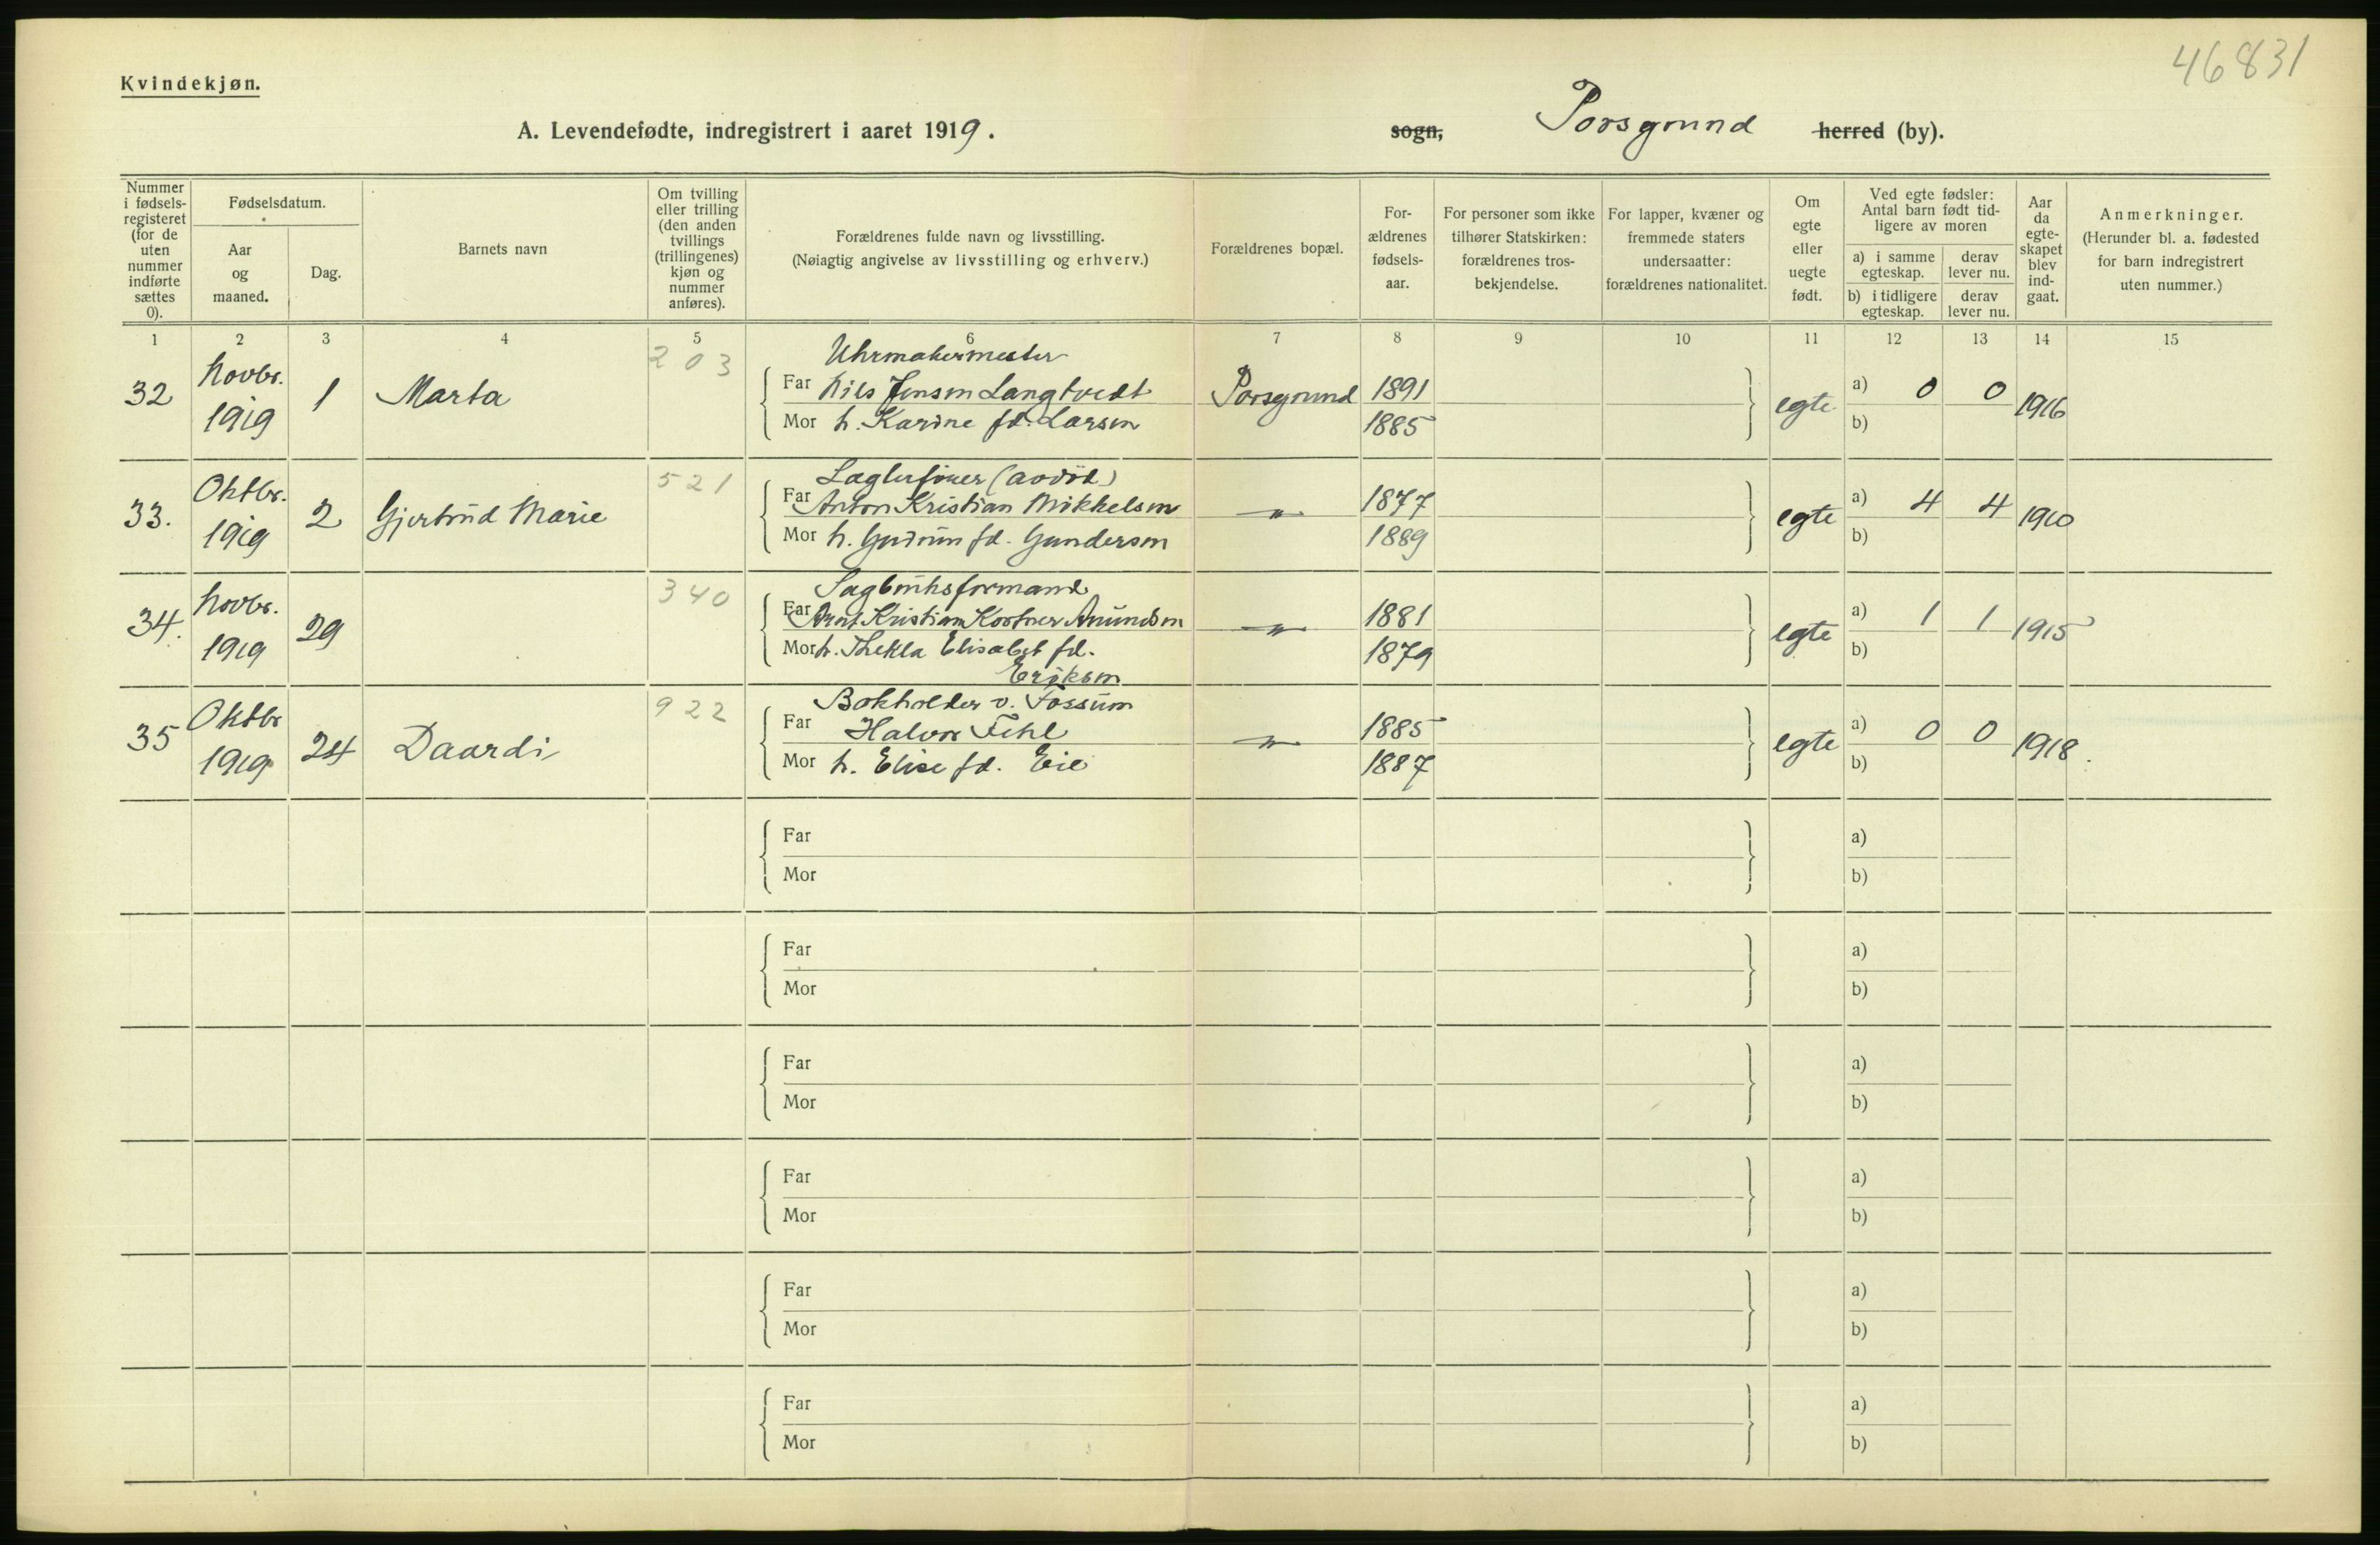 46831
Kvindekjøn.
A. Levendefødte, indregistrert i aaret 1919.
sogn, Porsgrund herred (by).
Nummer i fødsels-registeret (for de uten nummer indførte sættes 0).
Fødselsdatum.
Aar og maaned.
Dag.
Barnets navn
Om tvilling eller trilling (den anden tvillings (trillingenes) kjøn og nummer anføres).
Forældrenes fulde navn og livsstilling.
(Nøiagtig angivelse av livsstilling og erhverv.)
Forældrenes bopæl.
For-ældrenes fødsels-aar.
For personer som ikke tilhører Statskirken: forældrenes tros-bekjendelse.
For lapper, kvæner og fremmede staters undersaatter: forældrenes nationalitet.
Om egte eller uegte født.
Ved egte fødsler: Antal barn født tid-ligere av moren
a) i samme egteskap.
derav lever nu.
b) i tidligere egteskap.
derav lever nu.
Aar da egte-skapet blev ind-gaat.
Anmerkninger.
(Herunder bl. a. fødested for barn indregistrert uten nummer.)
1 2 3 4 5 6 7 8 9 10 11 12 13 14 15
203 Uhrmakermester
32 Novbr. 1919 1 Marta Far Nils Jensen Langtvedt Porsgrund 1891 egte a) 0 0 1916
Mor h. Karine fd. Larsen 1885 b)
521 (avdød)
33. Oktbr. 1919 2 Gjertrud Marie Far Anton Kristian Mikkelsen -"- 1877 egte a) 4 4 1910
Mor h. Gudrun fd. Gundersen 1889 b)
340 Sagbruksformand
34. Novbr. 1919 29 Far Kristian Amundsen -"- 1881 egte a) 1 1 1915
Mor h. Thekla Elisabet fd. 1879 b)
Eriksen
922 Bokholder v. Fossum
35 Oktbr 1919 24 Daardi Far Halvor Fehl -"- 1885 egte a) 0 0 1918.
Mor h. Elise fd. Eie 1887 b)
Far a)
Mor b)
Far a)
Mor b)
Far a)
Mor b)
Far a)
Mor b)
Far a)
Mor b)
Far a)
Mor b)